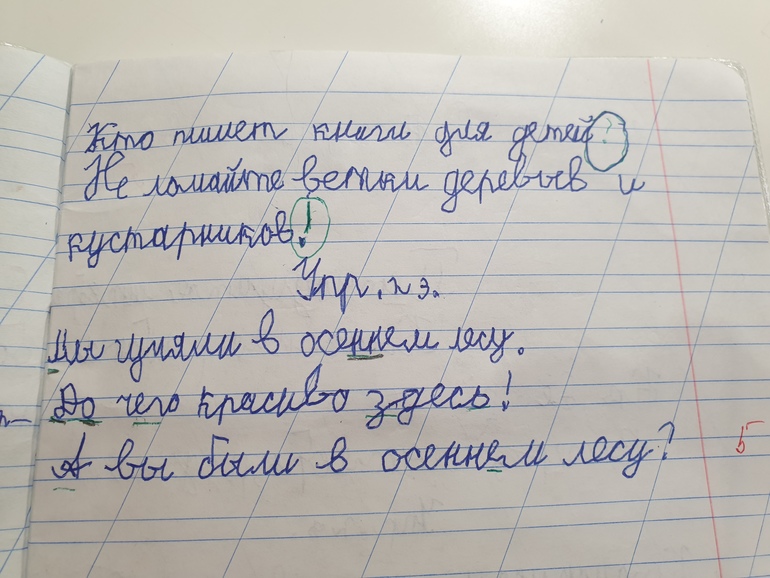 Кто пишет книги для детей?
Не ломайте ветки деревьев и
кустарников!
Упр. 13.
Мы гуляли в осеннем лесу.
До чего красиво здесь!
А вы были в осеннем лесу?
5